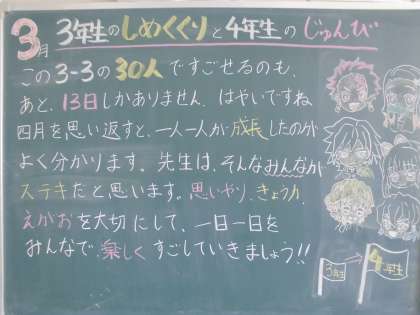 3月 3年生のしめくくりと4年生のじゅんび
この3-3の30人ですごせるのも、
あと、13日しかありません。はやいですね
四月を思い返すと、一人一人が成長したのが
よく分かります。先生は、そんなみんなが
ステキだと思います。思いやり、きょう力、
えがおを大切にして、一日一日を
みんなで、楽しくすごしていきましょう!!
3年生
4年生